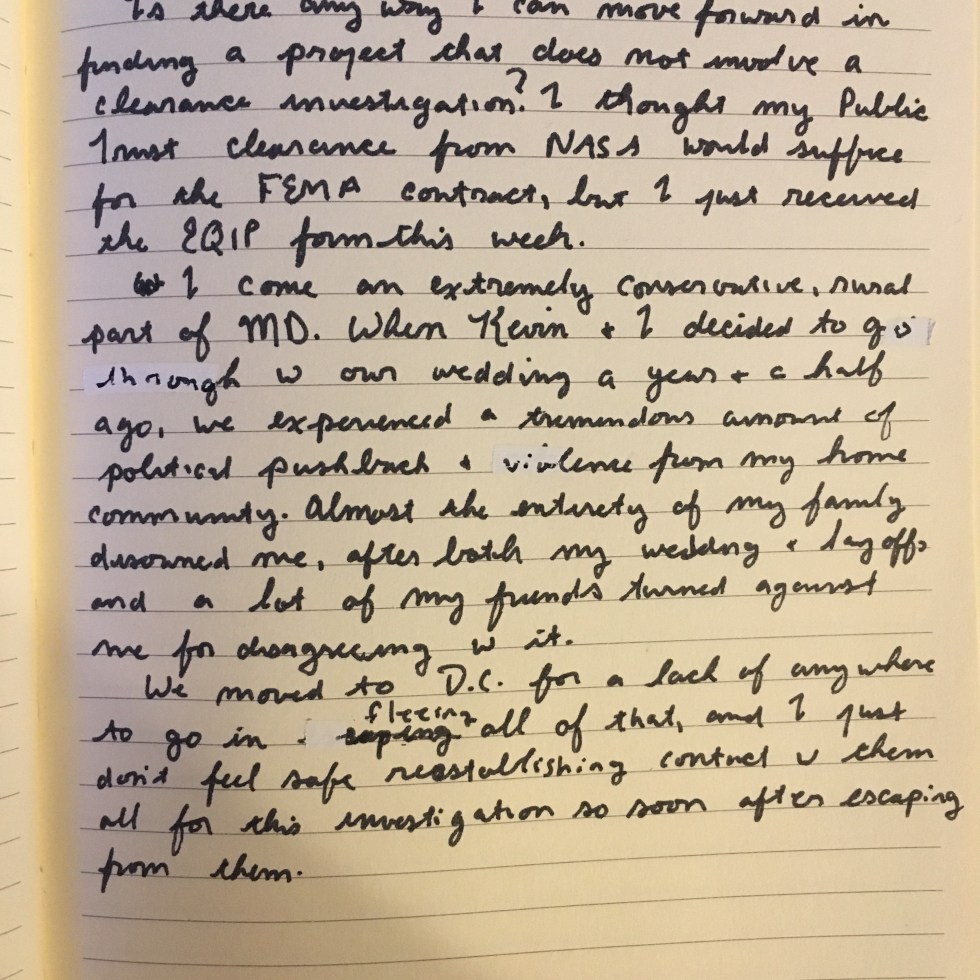 Is there any way I can move forward in
finding a project that does not involve a
clearance investigation? I thought my Public
Trust clearance from NASA would suffice
for the FEMA contract, but I just received
the EQIP form this week.
I come an extremely conservative, rural
part of MD. When Kevin + I decided to go
through w our wedding a year + a half
ago, we experienced a tremendous amount of
political pushback + violence from my home
community. Almost the entirety of my family
disowned me, after both my wedding + layoffs
and a lot of my friends turned against
me for disagreeing w it.
We moved to D.C. for a lack of anywhere
to go in fleeing all of that, and I just
don't feel safe reestablishing contact w them
all for this investigation so soon after escaping
from them.